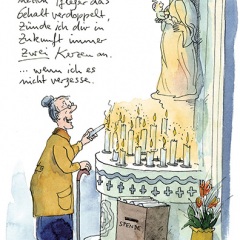 meinem Pfleger das
Gehalt verdoppelt,
zünde ich dir in
Zukunft immer
zwei Kerzen an.
... wenn ich es
nicht vergesse.
SPENDE